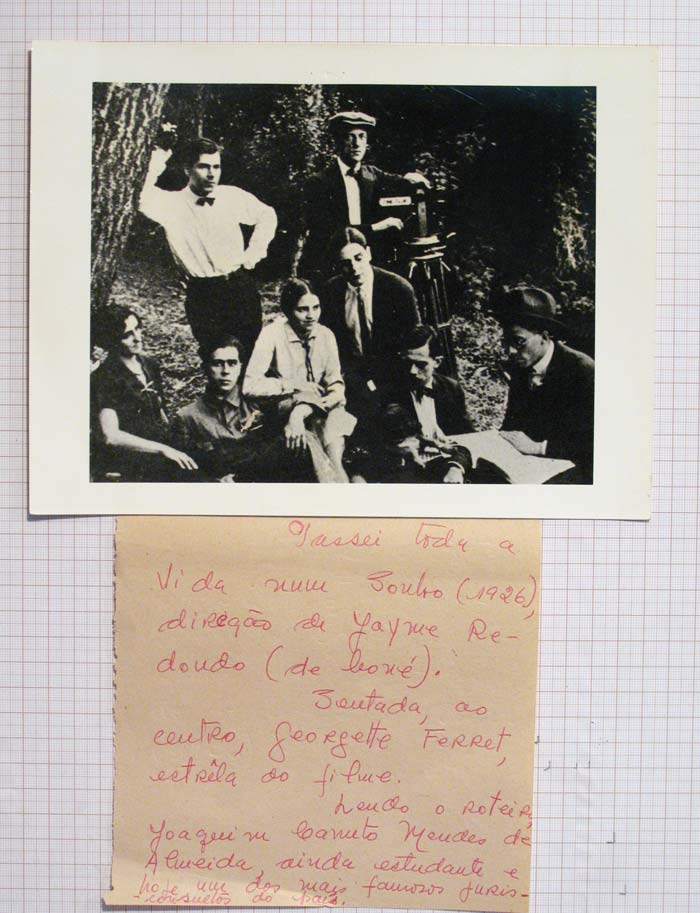 Passei toda a
Vida num Sonho (1926),
direção de Jayme Re-
dondo (de boné).
Sentada, ao
centro, Georgette Ferret,
estrêla do filme.
Lendo o roteiro,
Joaquim Canuto Mendes de
Almeida, ainda estudante e
hoje um dos mais famosos juris-
-consultos do país.